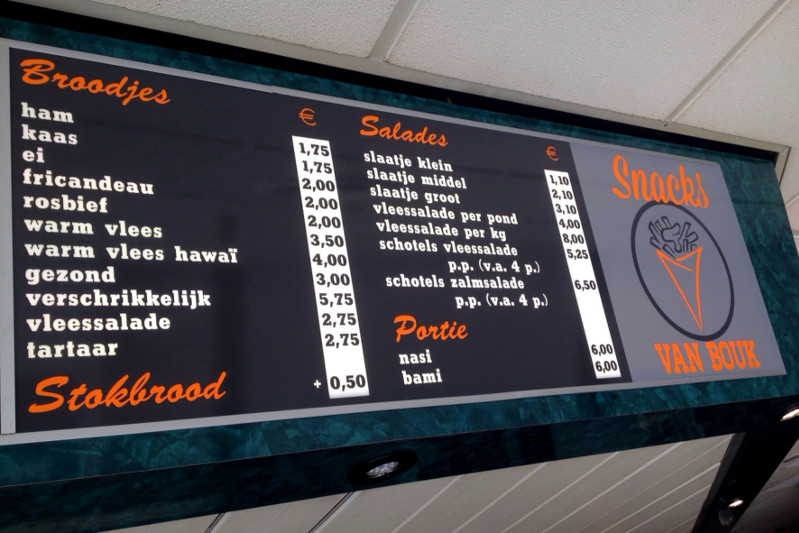 Broodjes €
ham 1,75
kaas 1,75
ei 2,00
fricandeau 2,00
rosbief 2,00
warm vlees 3,50
warm vlees hawaï 4,00
gezond 3,00
verschrikkelijk 5,75
vleessalade 2,75
tartaar 2,75
Stokbrood + 0,50
Salades €
slaatje klein 1,10
slaatje middel 2,10
slaatje groot 3,10
vleessalade per pond 4,00
vleessalade per kg 8,00
schotels vleessalade 5,25
p.p. (v.a. 4 p.)
schotels zalmsalade 6,50
p.p. (v.a. 4 p.)
Portie
nasi 6,00
bami 6,00
Snacks
VAN BOUK